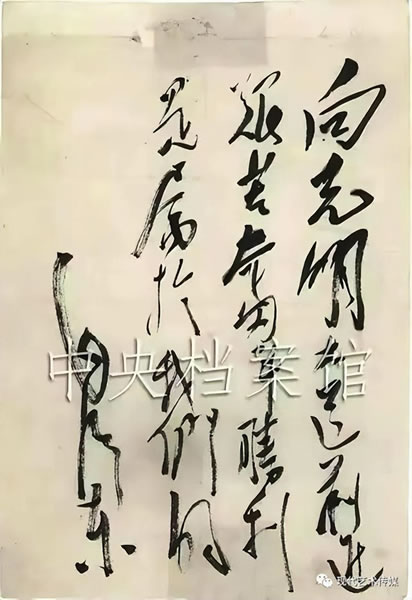 向光明前進
艱苦奋斗勝利
是属於我們的
毛泽东
中央档案馆
现代艺术传媒